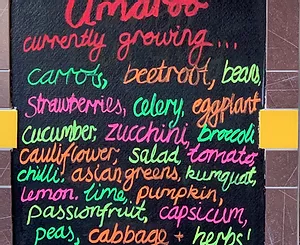 currently growing...
carrots, beetroot, beans,
Strawberries, celery, eggplant
cucumber, zucchini, broccoli
cauliflower, salad, tomato,
chilli, asian greens, kumquat,
lemon, lime, pumpkin,
passionfruit, capsicum,
peas, cabbage + herbs!